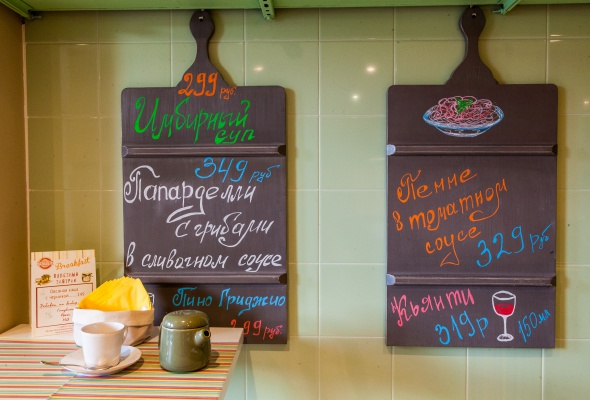 299 руб
Имбирный
суп
349 руб
Папарделли
с грибами
в сливочном соусе
Пино Гриджио
299 руб.
Пенне
в томатном
соусе
329 руб
Кьянти
319 р
150мл
Breakfast
завтрак